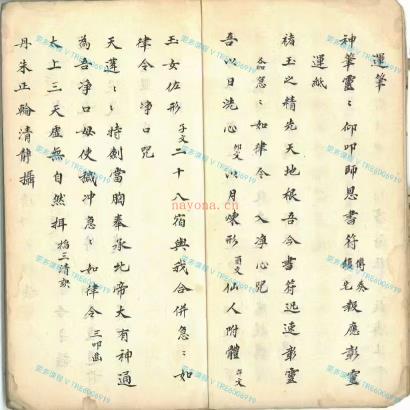 運筆
神筆靈〻仰叩師恩書符傳奏後光報應彰靈
運紙
楮玉之精先天地根吾今書符迅速彰靈
急急〻如律令 入淨心咒
吾以日洗心卯文以月煉形酉文仙人附體午文
玉女佐形子文二十八宿與我合併急〻如
律令 淨口咒
天蓬〻〻持劍當胸奉承北帝大有神通
為吾淨口毋使攙冲急〻如律令三叩齒
太上三天虛無自然揖掐三清訣
丹朱正輪清靜攝
更多课程 V TRE6006919
nayona.cn